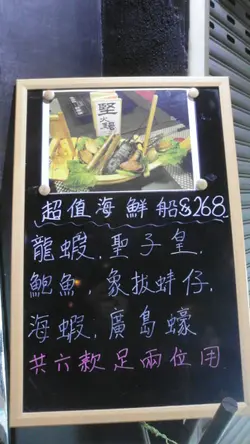 堅
火鍋
超值海鮮船$268
龍蝦,聖子皇,
鮑魚,象拔蚌仔,
海蝦,廣島蠔
共六款足兩位用